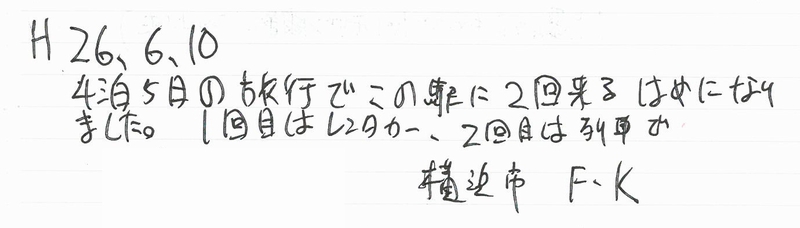 H 26、6、10
4泊5日の旅行でこの駅に2回来るはめになり
ました。1回目はレンタカー、2回目は列車で
横浜市 F.K